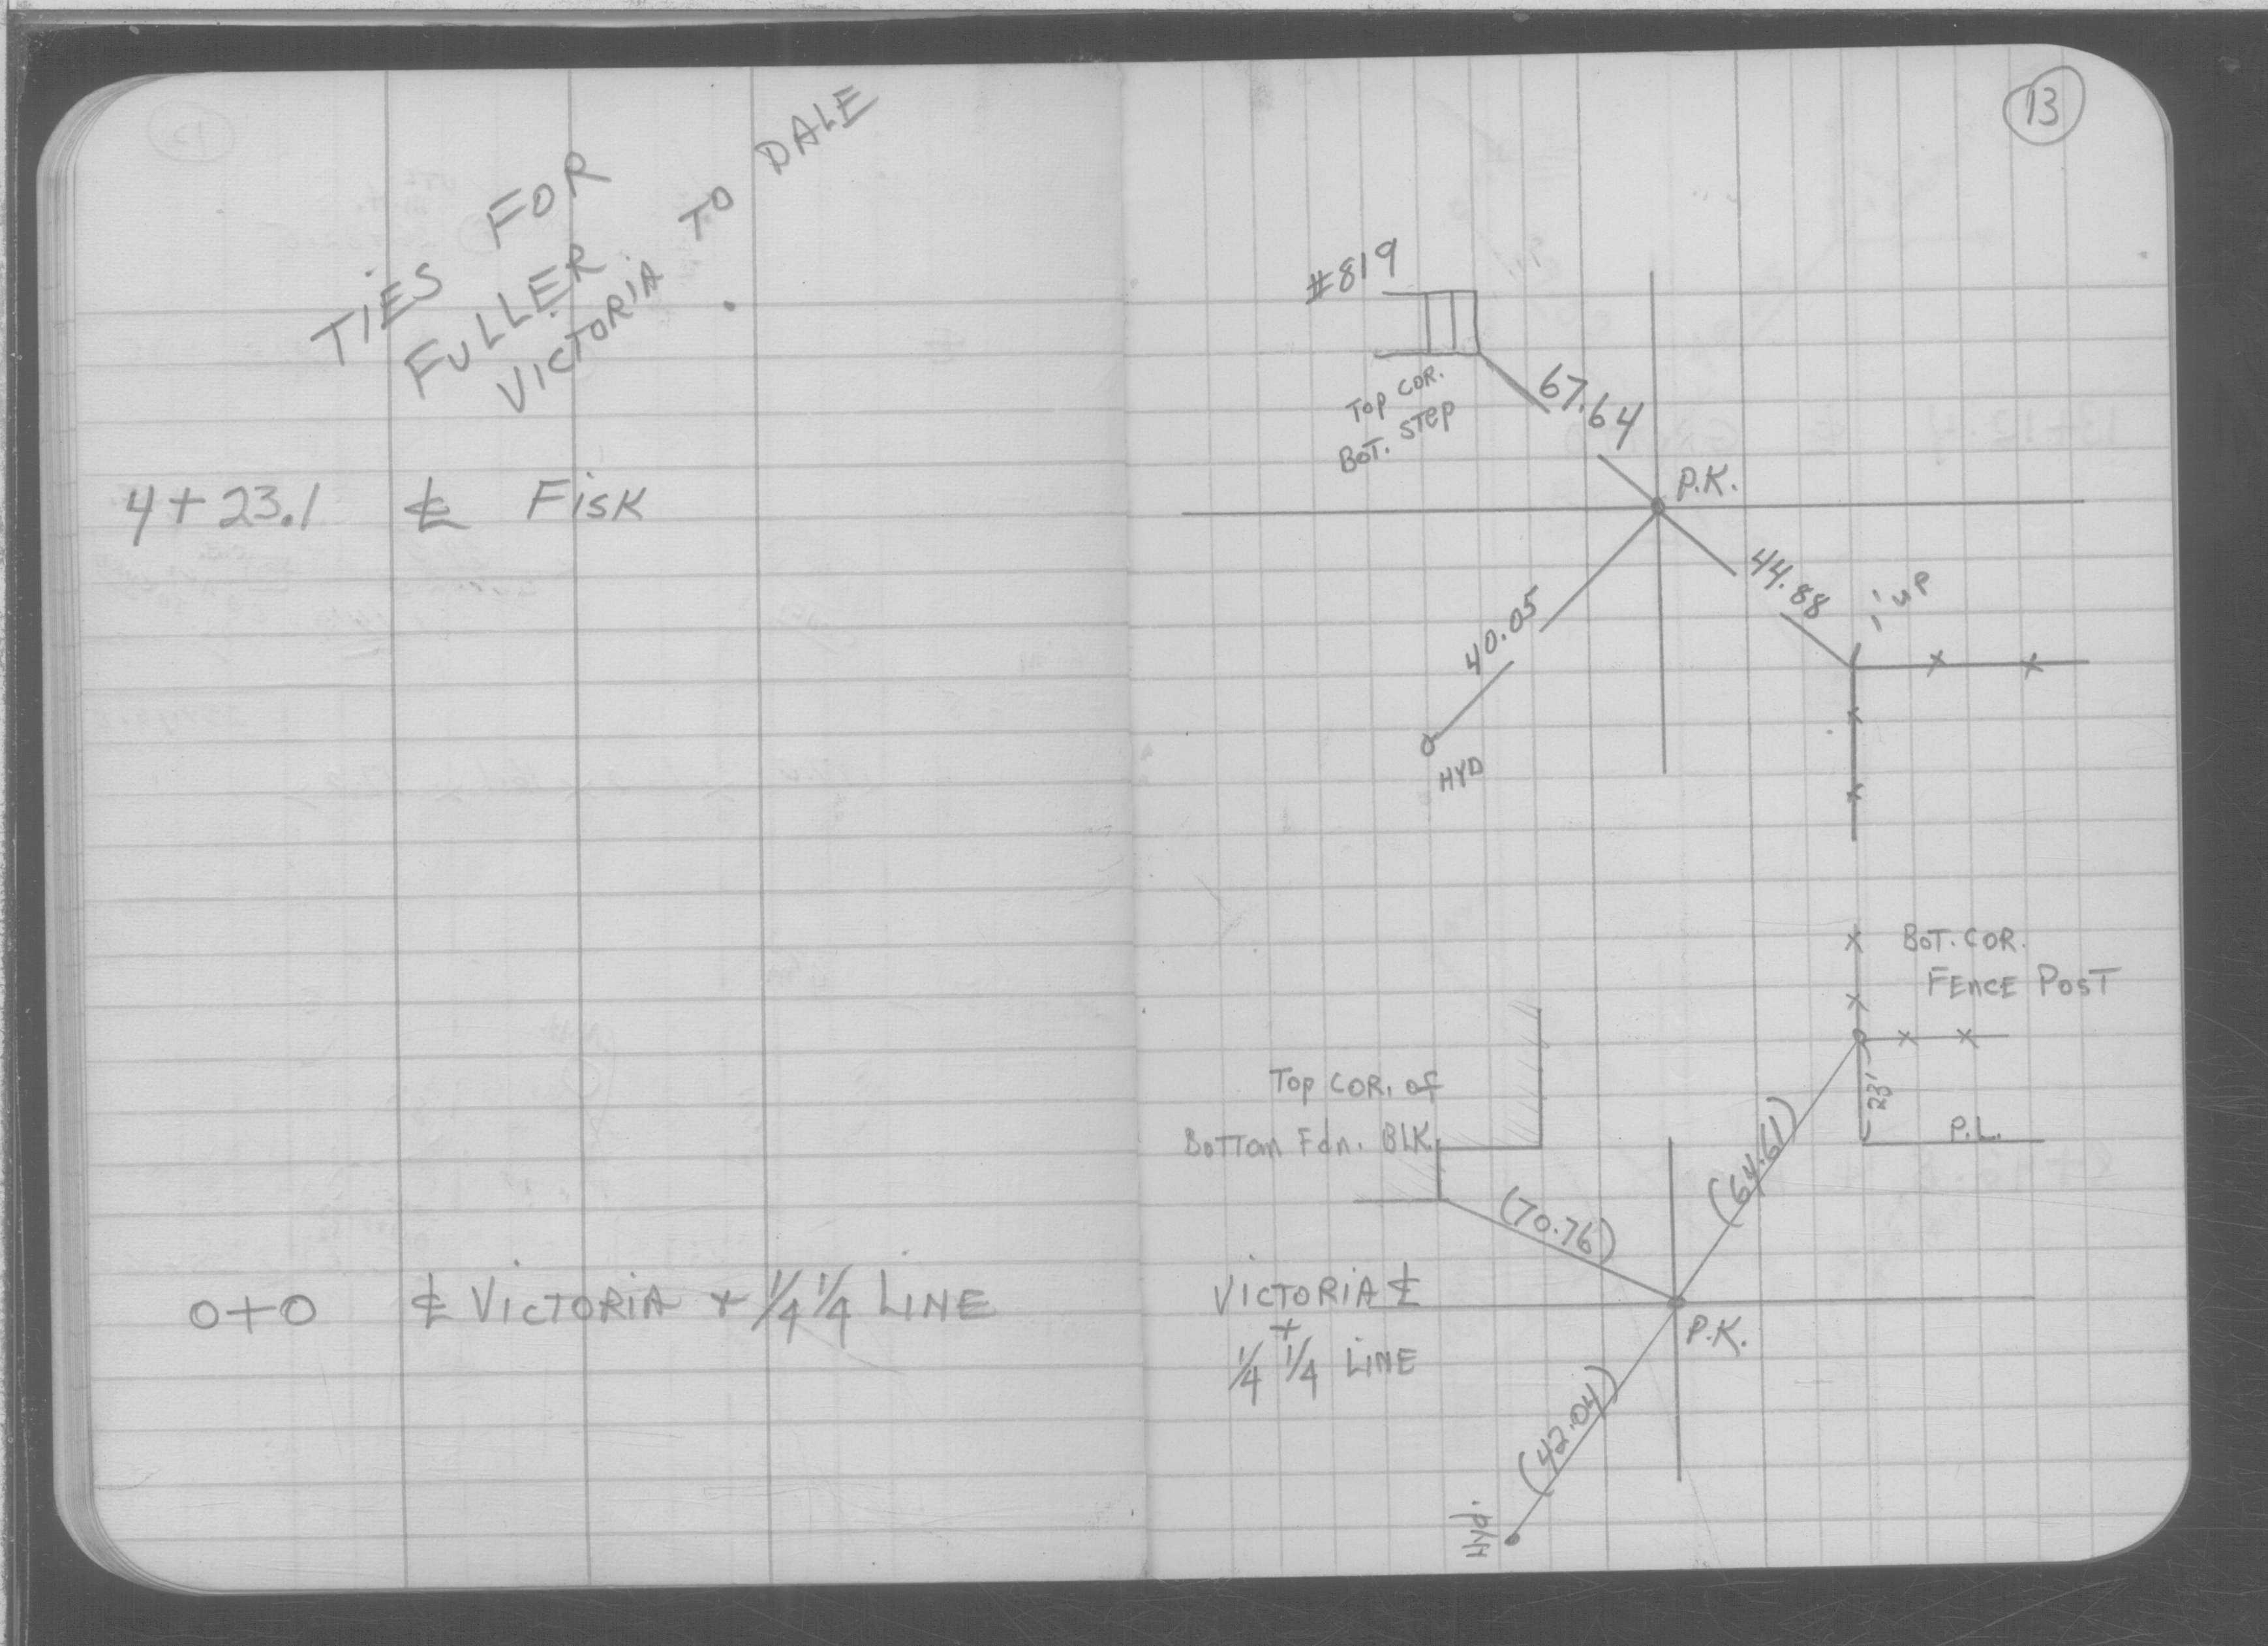 TIES FOR
FULLER
VICTORIA TO DALE
4+23.1 ℄ FISK
0+0 ℄ VICTORIA + 1/4 1/4 LINE
13
#819
TOP COR.
BOT. STEP
67.64
P.K.
44.88
40.05
HYD
BOT. COR.
FENCE POST
23'
P.L.
TOP COR. of
BOTTOM Fdn. BLK.
(64.61)
(70.76)
VICTORIA ℄
+
1/4 1/4 LINE
P.K.
(42.04)
Hyd.